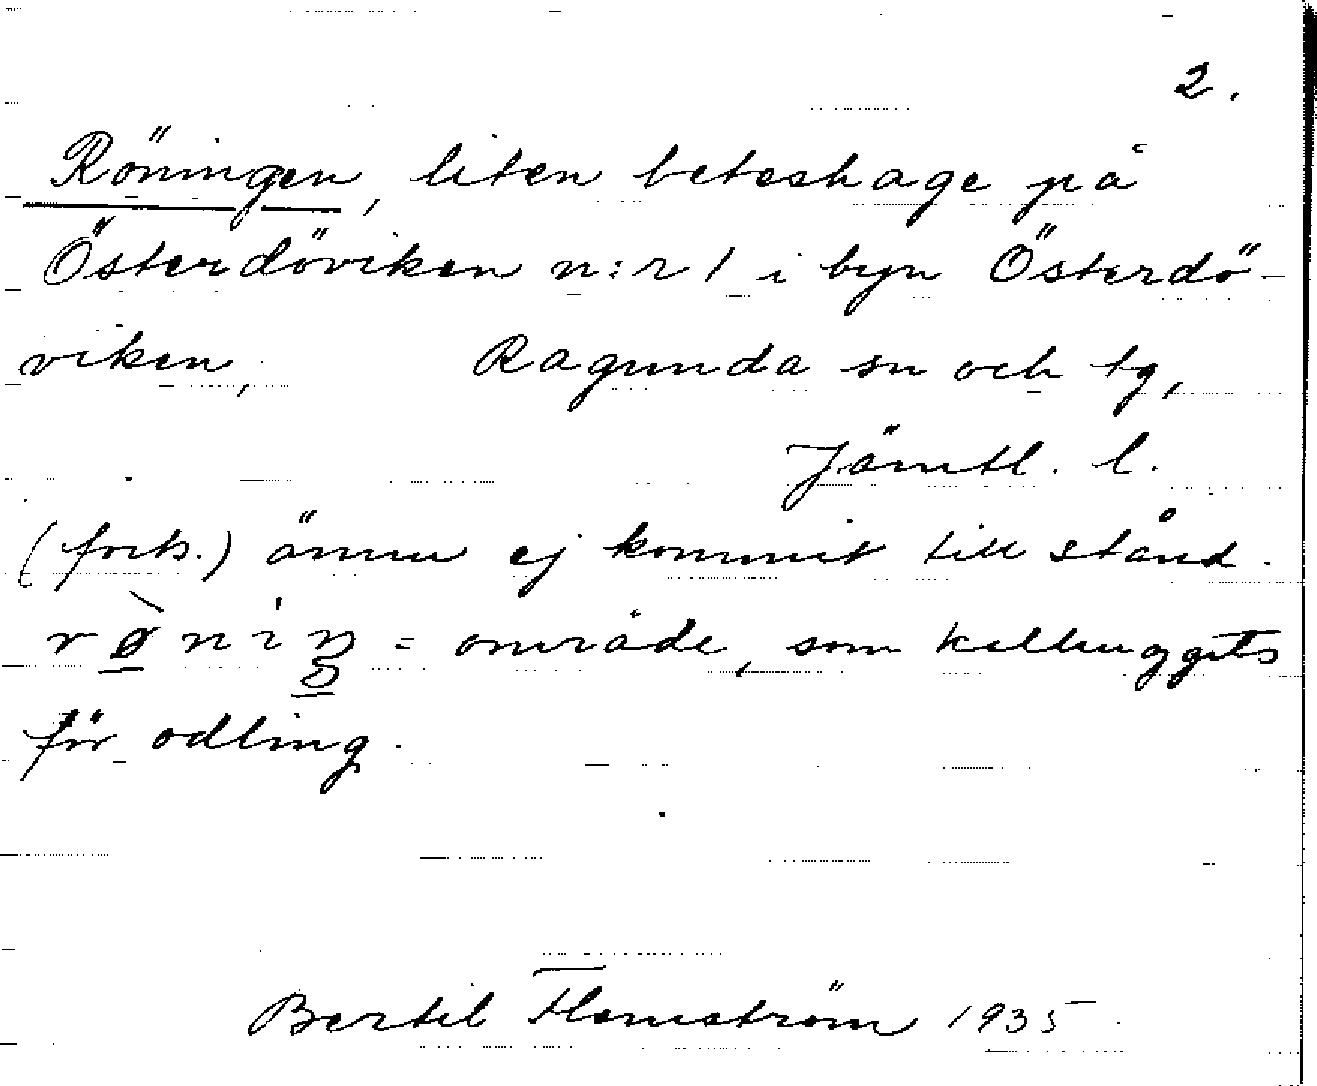 2.
Röningen, liten beteshage på
Österdöviken n:r 1 i byn Österdö-
viken, Ragunda sn och tg,
Jämtl. l.
(forts.) ännu ej kommit till stånd.
= område, som kalhuggits
för odling.
Bertil Flemström 1935